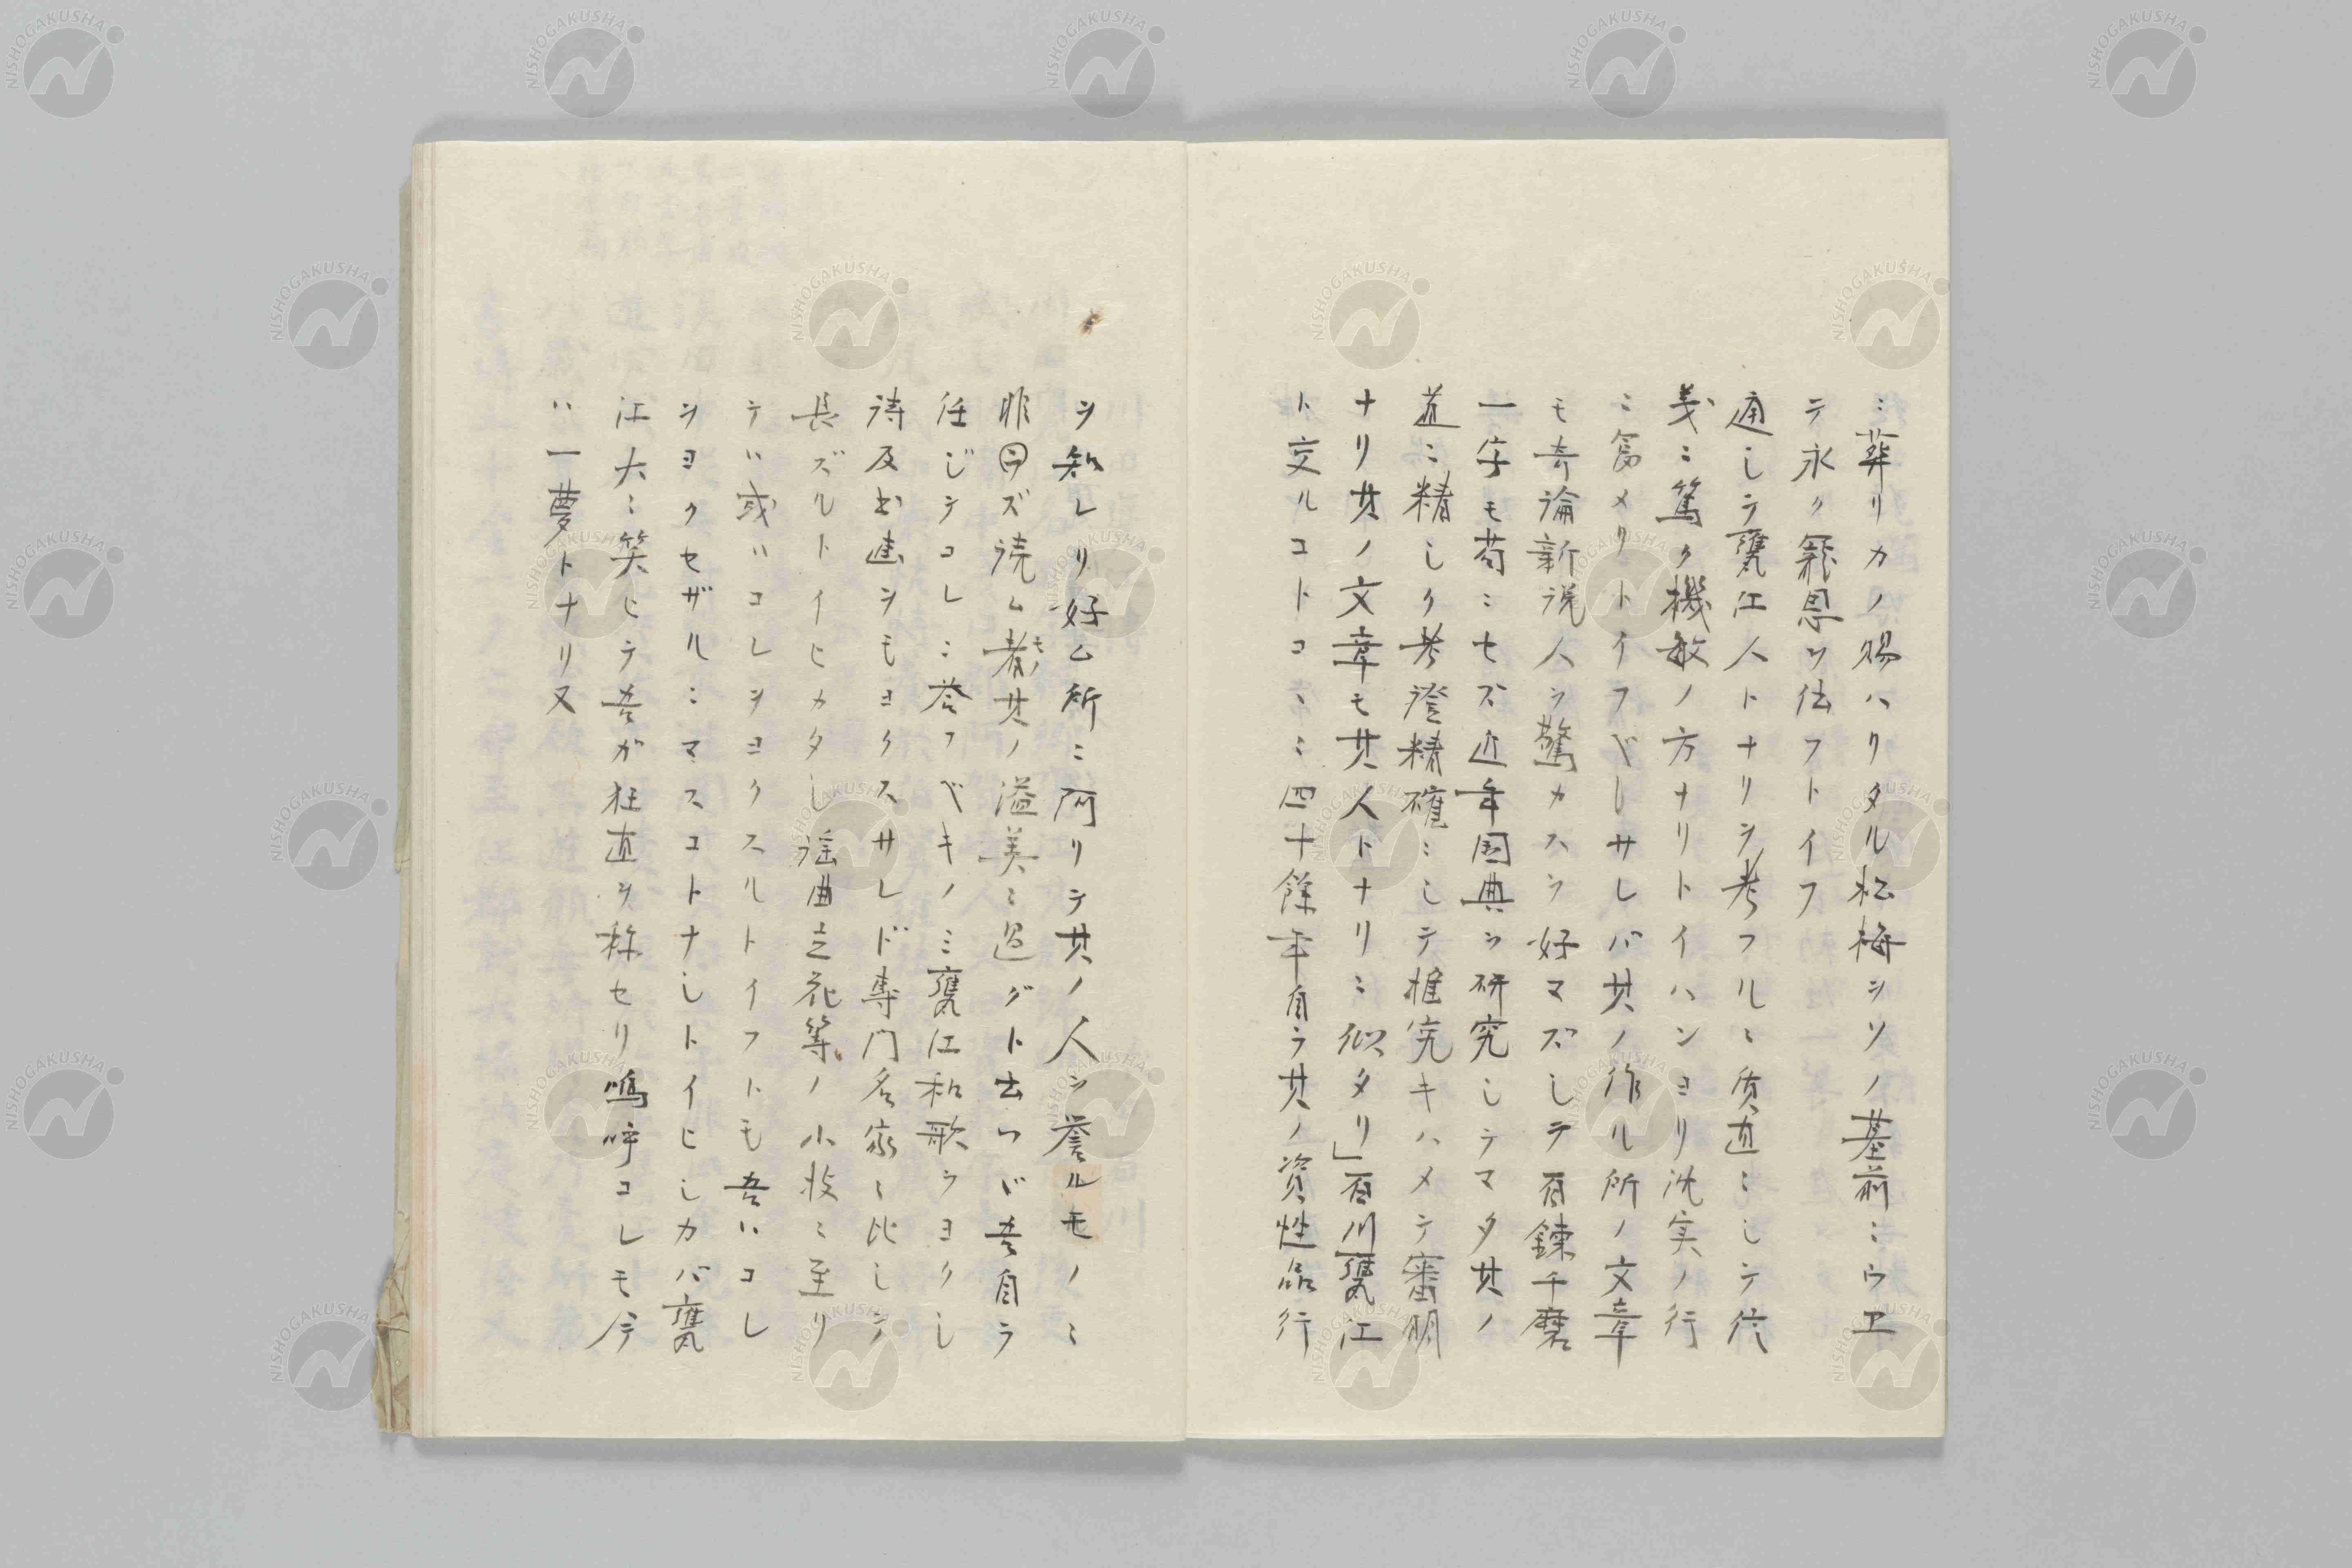 ニ葬リカノ賜ハリタル松梅ヲソノ墓前ニウヱ
テ永ク寵恩ヲ伝フトイフ
通しテ甕江人トナリヲ考フルニ質直ニしテ信
義ニ篤ク機敏ノ方ナリトイハンヨリ沈実ノ行
ニ富メリトイフベしサレバ其ノ作ル所ノ文章
モ奇論新説人ヲ驚カスヲ好マズしテ百錬千磨
一字モ苟ニセズ近年国典ヲ研究しテマタ其ノ
道ニ精しク考證精確ニしテ推究キハメテ審明
ナリ其ノ文章モ其人トナリニ似タリ」百川甕江
ト交ルコトコヽニ四十餘年自ラ其ノ資性品行
ヲ知レリ好ム所ニ阿リテ其ノ人ヲ誉ルモノニ
非ルズ読ム者モノ其ノ溢美ニ過グト云ワバ吾自ラ
任ジテコレニ答フベキノミ甕江和歌ヲヨクし
詩及書畫ヲモヨクスサレド専門名家ニ比しテ
長ズルトイヒカタし謡曲立花等ノ小技ニ至リ
テハ或ハコレヲヨクスルトイフトモ吾ハコレ
ヲヨクセザルニマスコトナしトイヒしカバ甕
江大ニ笑ヒテ吾ガ狂直ヲ称セリ嗚呼コレモ今
ハ一夢トナリ又
NISHOGAKUSHA